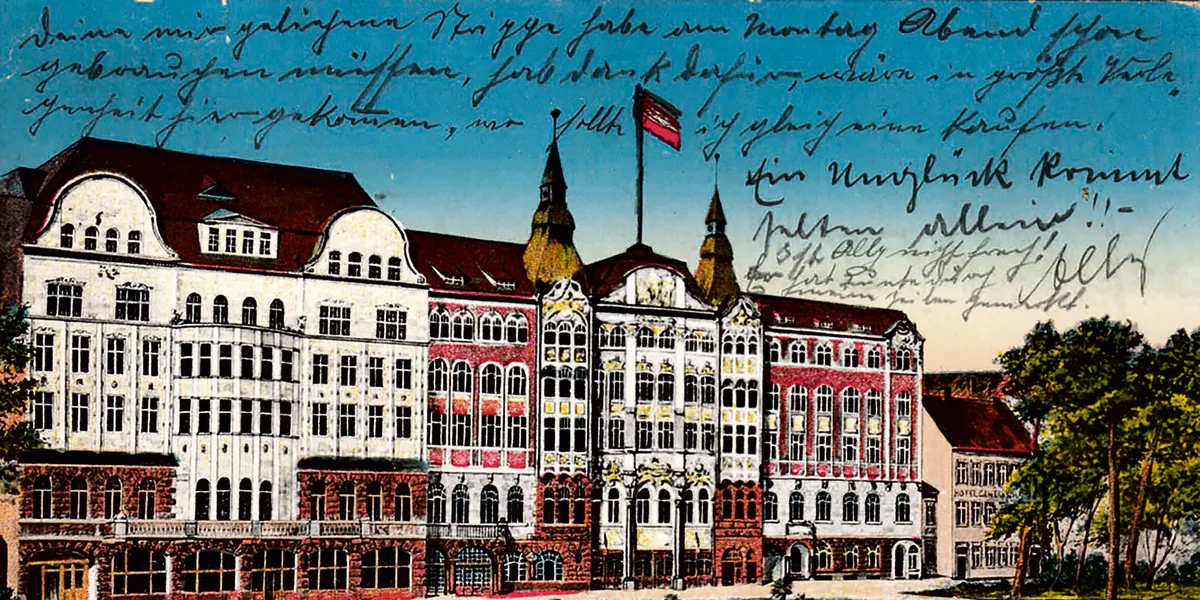 Deine mir geliehene Strippe habe am Montag Abend schon
gebrauchen müssen, hab dank dafür, wäre in größte Verle-
genheit hier gekommen, wo sollte ich gleich eine kaufen.
Ein Unglück kommt
selten allein!!-
Olly nicht frech!
hat
gemerkt.
Olly
HOTEL